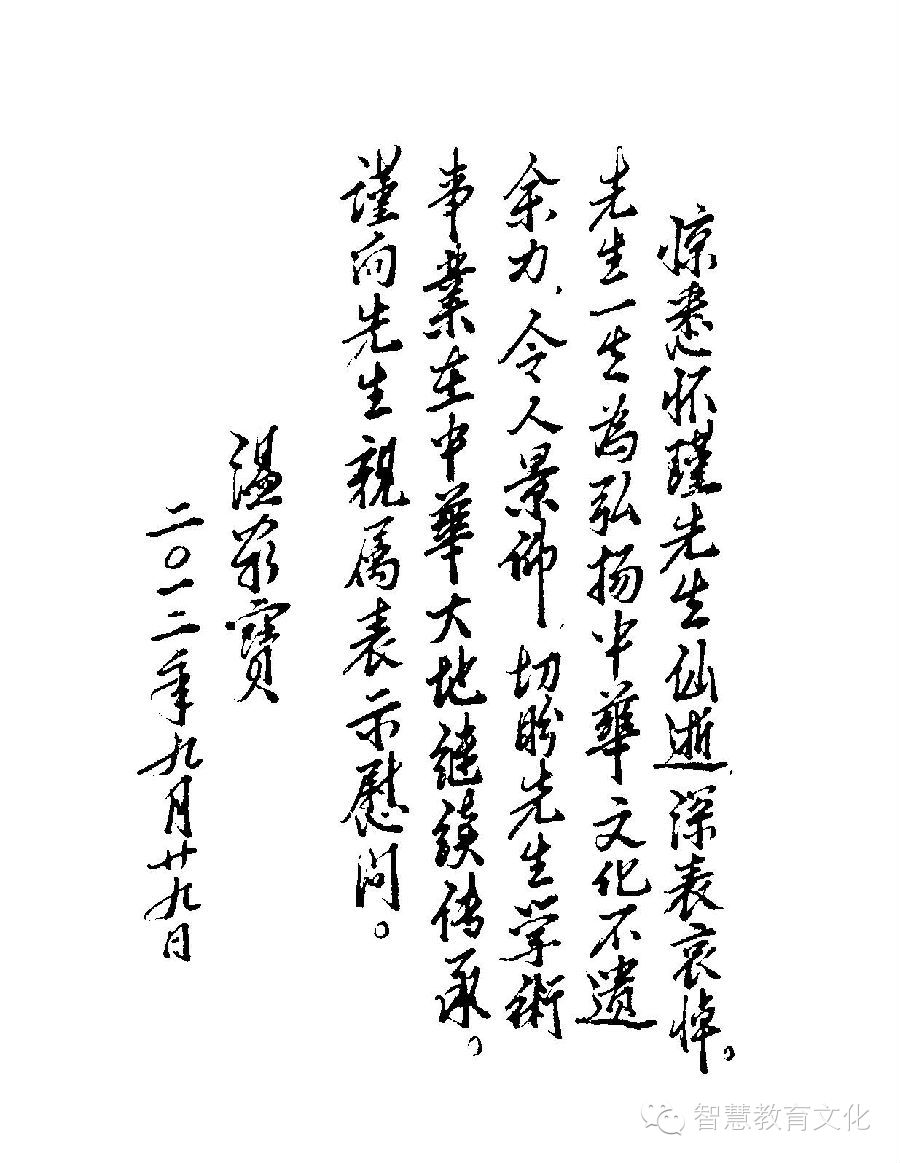 惊悉怀瑾先生仙逝，深表哀悼。
先生一生为弘扬中華文化不遗
余力，令人景仰，切盼先生学術
事業在中華大地继续传承。
謹向先生親属表示慰问。
温家寶
二〇一二年九月廿九日
智慧教育文化